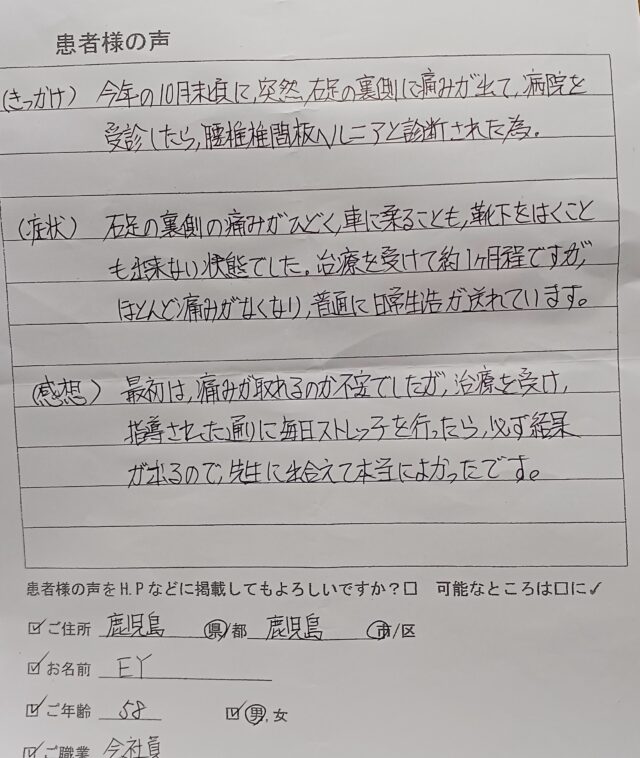 患者様の声
(きっかけ) 今年の10月末頃に,突然,右足の裏側に痛みが出て,病院を
受診したら,腰椎椎間板ヘルニアと診断された為。
(症状) 右足の裏側の痛みがひどく,車に乗ることも,靴下をはくこと
も出来ない状態でした。治療を受けて約1ヶ月程ですが,
ほとんど痛みがなくなり,普通に日常生活が送れています。
(感想) 最初は,痛みが取れるのか不安でしたが,治療を受け,
指導された通りに毎日ストレッチを行ったら,必ず結果
が出るので,先生に出会えて本当によかったです。
患者様の声をH.Pなどに掲載してもよろしいですか?□ 可能なところは□に✓
☑ご住所 鹿児島 県/都 鹿児島 市/区
☑お名前 EY
☑ご年齢 58 ☑男,女
☑ご職業 会社員